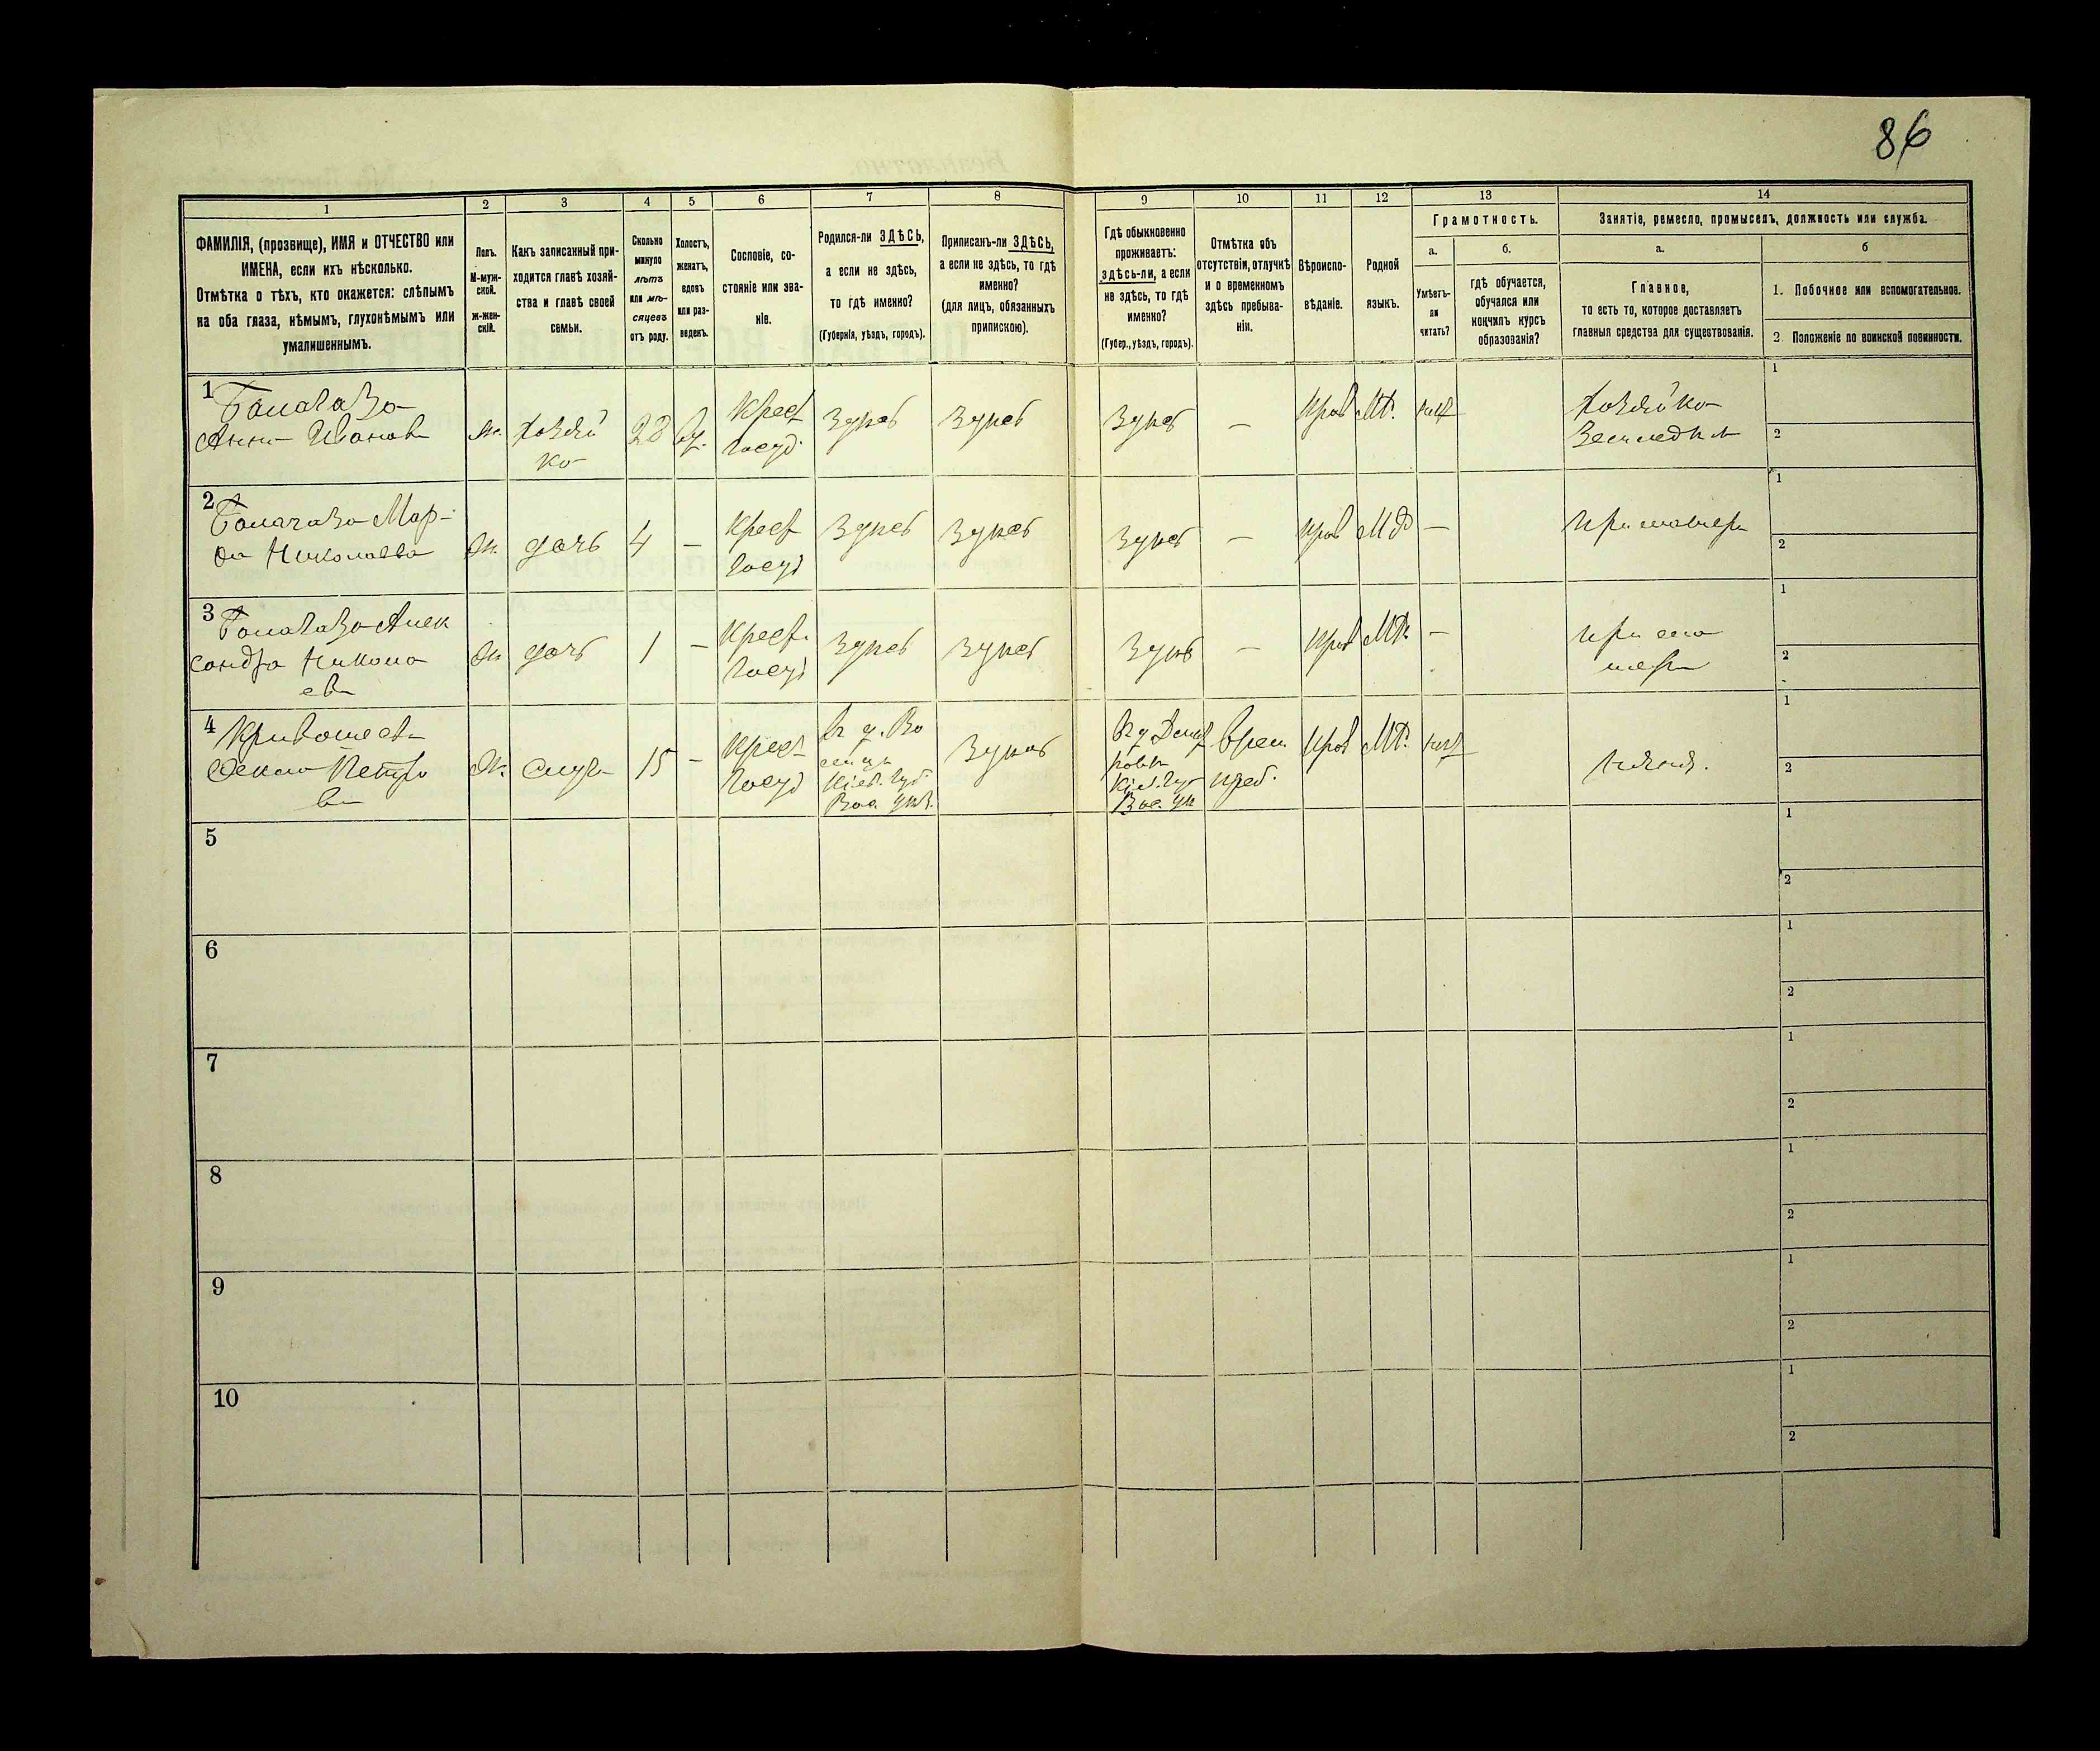 86
1 2 3 4 5 6 7 8 9 10 11 12 13 14
ФАМИЛІЯ, (прозвище), ИМЯ и ОТЧЕСТВО или
ИМЕНА, если ихъ нѣсколько.
Отмѣтка о тѣхъ, кто окажется: слѣпымъ
на оба глаза, нѣмымъ, глухонѣмымъ или
умалишеннымъ.
Полъ.
М-муж-
ской.
ж-жен-
скій.
Какъ записанный при-
ходится главѣ хозяй-
ства и главѣ своей
семьи.
Сколько
минуло
лѣтъ
или мѣ-
сяцевъ
отъ роду.
Холостъ,
женатъ,
вдовъ
или раз-
веденъ.
Сословіе, со-
стояніе или зва-
ніе.
Родился-ли ЗДѢСЬ,
а если не здѣсь,
то гдѣ именно?
(Губернія, уѣздъ, городъ).
Приписанъ-ли ЗДѢСЬ,
а если не здѣсь, то гдѣ
именно?
(для лицъ, обязанныхъ
припискою).
Гдѣ обыкновенно
проживаетъ:
здѣсь-ли, а если
не здѣсь, то гдѣ
именно?
(Губер., уѣздъ, городъ).
Отмѣтка объ
отсутствіи, отлучкѣ
и о временномъ
здѣсь пребыва-
ніи.
Вѣроиспо-
вѣданіе.
Родной
языкъ.
Грамотность.
а.
Умѣетъ-
ли
читать?
б.
гдѣ обучается,
обучался или
кончилъ курсъ
образованія?
Занятіе, ремесло, промыселъ, должность или служба.
а.
Главное,
то есть то, которое доставляетъ
главныя средства для существованія.
б
1. Побочное или вспомогательное.
2. Положеніе по воинской повинности.
1
Анна Иванов
ж. хозяй
ко
28
Крест
Госуд
здесь здесь здесь —
прав МР. нет
хозяйка
1
2
2
Николаева
ж. дочь 4 —
Крест
Госуд
здесь здесь здесь —
прав МР —
при матери
1
2
3
Алек
сандра Никола
ева
ж дочь 1 —
Крест
Госуд
здесь здесь здесь —
прав МР. —
при ма
тери
1
2
4
Петро
ва
ж. слуга 15 —
Крест
Госуд
Кіев. Губ
Вас. уѣз.
здесь
Кіев. Гу
Вас. уѣ
врем.
преб.
прав МР. нет
няня.
1
2
5
1
2
6
1
2
7
1
2
8
1
2
9
1
2
10
1
2